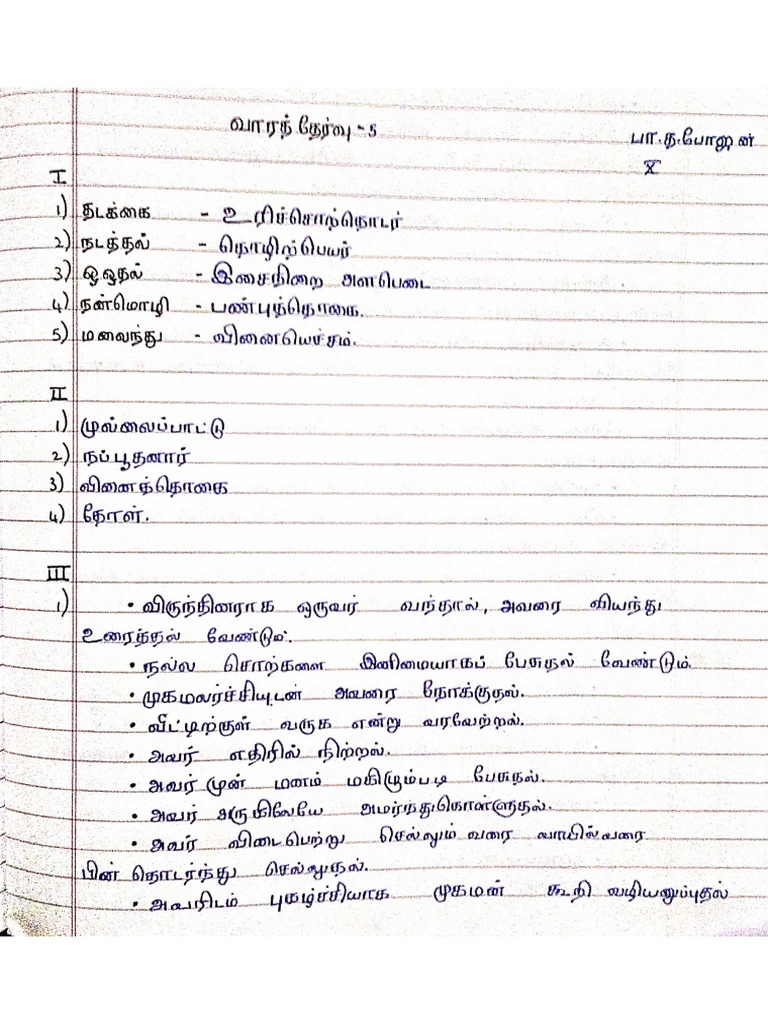 வாரத் தேர்வு - 5
பா.த.போஜன்
X
I
1) தடக்கை - உரிச்சொற்றொடர்
2) நடத்தல் - தொழிற்பெயர்
3) ஒஒதல் - இசைநிறை அளபெடை
4) நன்மொழி - பண்புத்தொகை.
5) மலைந்து - வினையெச்சம்.
II
1) முல்லைப்பாட்டு
2) நப்பூதனார்
3) வினைத்தொகை
4) தோள்.
III
1) • விருந்தினராக ஒருவர் வந்தால், அவரை வியந்து
உரைத்தல் வேண்டும்.
• நல்ல சொற்களை இனிமையாகப் பேசுதல் வேண்டும்.
• முகமலர்ச்சியுடன் அவரை நோக்குதல்.
• வீட்டிற்குள் வருக என்று வரவேற்றல்.
• அவர் எதிரில் நிற்றல்.
• அவர் முன் மனம் மகிழும்படி பேசுதல்.
• அவர் அருகிலேயே அமர்ந்துகொள்ளுதல்.
• அவர் விடைபெற்று செல்லும் வரை வாயில்வரை
பின் தொடர்ந்து செல்லுதல்.
• அவரிடம் புகழ்ச்சியாக முகமன் கூறி வழியனுப்புதல்